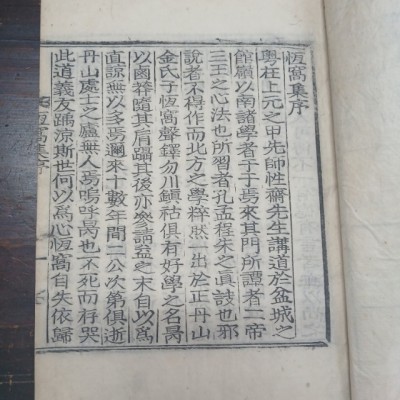 恆窩集序
粤在上元之甲先師性齋先生講道於盆城之
館嶺以南諸學者于于焉來其門所譚者二帝
三王之心法也所習者孔孟程朱之眞詮也邪
說者不得作而北方之學粹然一出於正丹山
金氏子恆窩聲鐸勿川鎭祜俱有好學之名舄
以鹵莽隨其肩躡其後亦樂請益之末自以爲
直諒無以多焉邇來十數年間二公次第俱逝
丹山處士之廬無人焉嗚呼舄也不死而存哭
此道義友踽涼斯世何以爲心恆窩自失依歸
恆窩集序